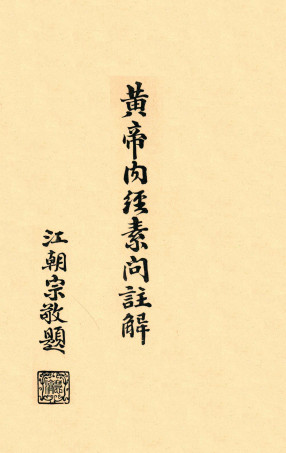 黄帝内經素问註解
江朝宗敬題